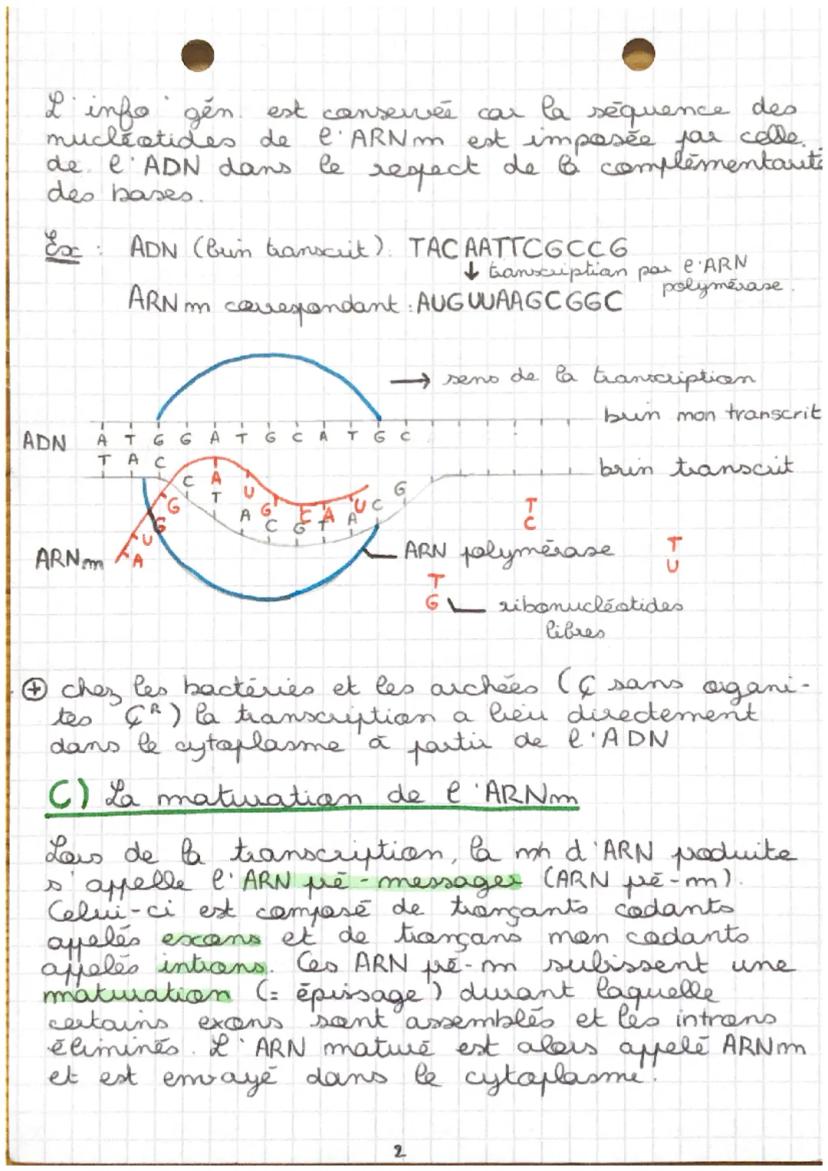 L'info° gén. est conservée car la séquence des
nucléotides de l'ARNm est imposée par celle
de l'ADN dans le respect de la complémentarité
des bases.
Ex : ADN (brin transcrit): TACAATTCGCCG
↓ transcription par l'ARN
polymérase.
ARNm correspondant : AUGUUAAGCGGC
→ sens de la transcription
brin non transcrit
ADN A T G G A T G C A T G C
T A C C T A C G T A C G
brin transcrit
A U G G A U G C A U
ARNm
T
C
ARN polymérase
T
U
T
G
ribonucléotides
libres
⊕ chez les bactéries et les archées (Ç sans organi-
tes Ç^R) la transcription a lieu directement
dans le cytoplasme à partir de l'ADN
C) La maturation de l'ARNm
Lors de la transcription, la mh d'ARN produite
s'appelle l'ARN pré-messager (ARN pré-m).
Celui-ci est composé de tronçants codants
appelés exons et de tronçans non codants
appelés introns. Ces ARN pré-m subissent une
maturation (= épissage) durant laquelle
certains exons sont assemblés et les introns
éliminés. L'ARN maturé est alors appelé ARNm
et est envoyé dans le cytoplasme.
2